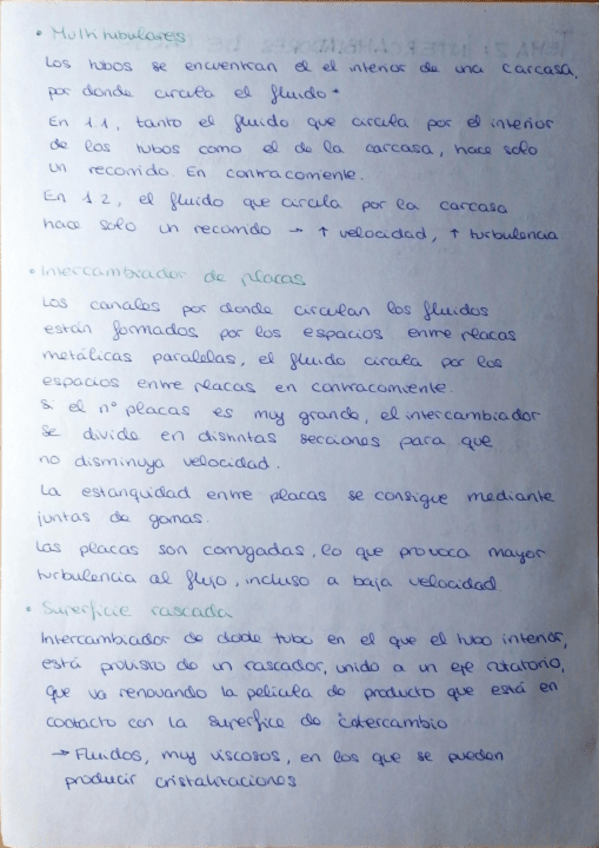 • Multitubulares
Los tubos se encuentran el el interior de una carcasa,
por donde circula el fluido.
En 1.1, tanto el fluido que circula por el interior
de los tubos como el de la carcasa, hace solo
un recorrido. En contracorriente.
En 1 2, el fluido que circula por la carcasa
hace solo un recorrido → ↑ velocidad, ↑ turbulencia
• Intercambiador de placas
Los canales por donde circulan los fluidos
están formados por los espacios entre placas
metálicas paralelas, el fluido circula por los
espacios entre placas en contracorriente.
Si el nº placas es muy grande, el intercambiador
se divide en distintas secciones para que
no disminuya velocidad.
La estanquidad entre placas se consigue mediante
juntas de gomas.
Las placas son corrugadas, lo que provoca mayor
turbulencia al flujo, incluso a baja velocidad
• Superficie rascada
Intercambiador de doble tubo en el que el tubo interior,
está provisto de un rascador, unido a un eje rotatorio,
que va renovando la película de producto que está en
contacto con la superfice de intercambio
→ Fluidos, muy viscosos, en los que se pueden
producir cristalizaciones